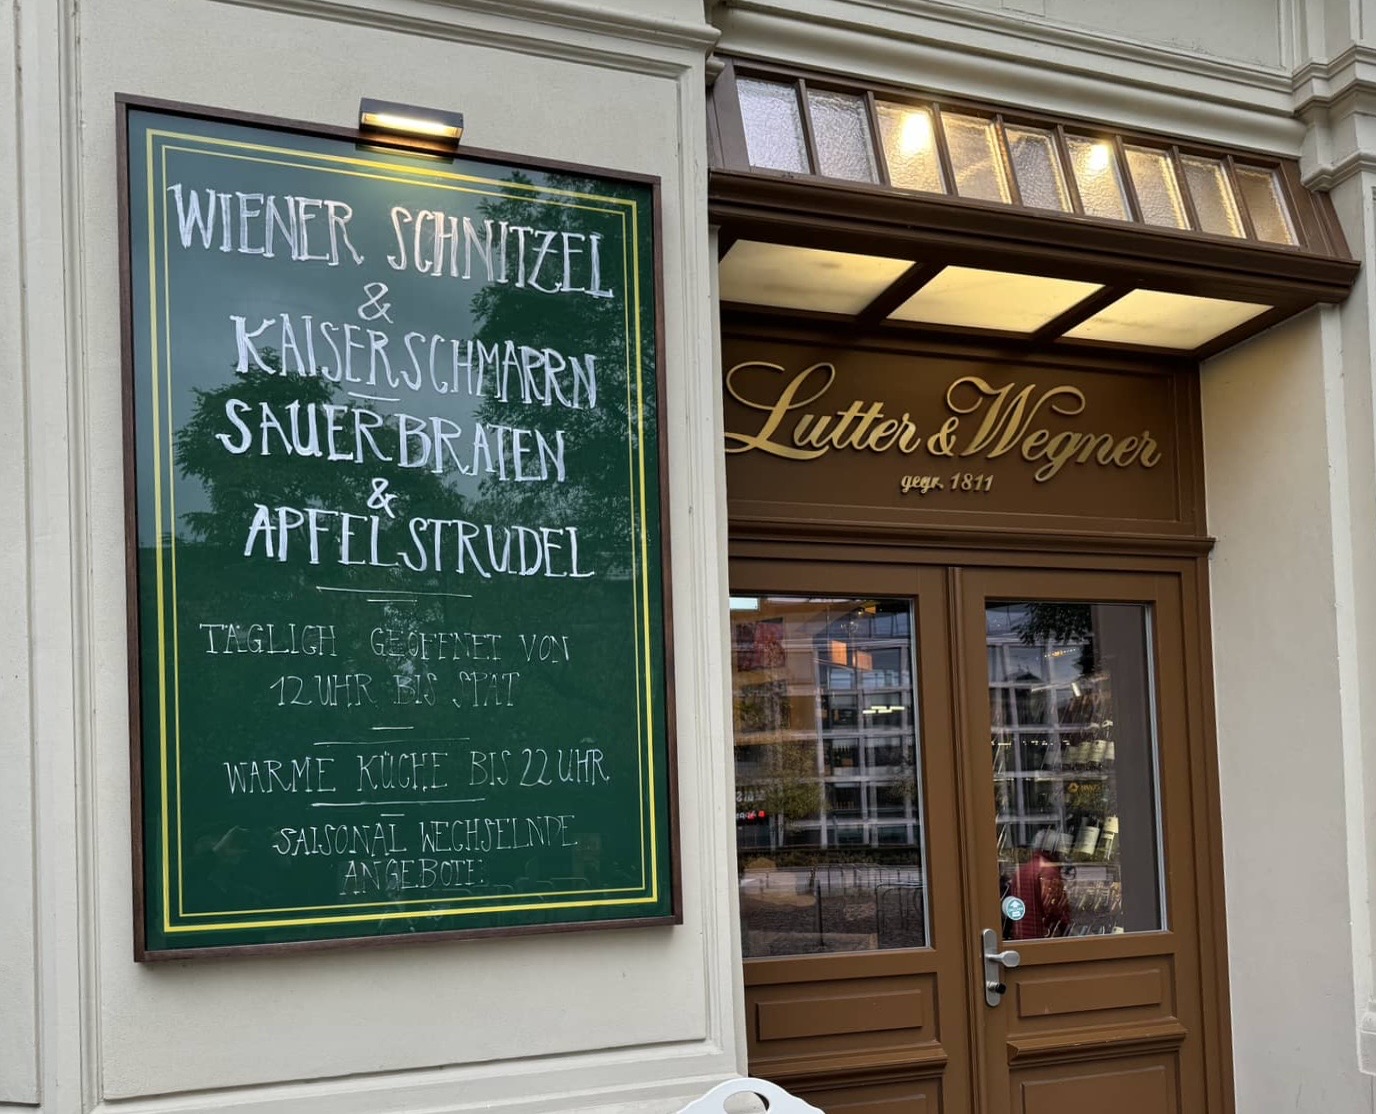 WIENER SCHNITZEL
&
KAISERSCHMARRN
SAUERBRATEN
&
APFELSTRUDEL
TÄGLICH GEÖFFNET VON
12 UHR BIS SPÄT
WARME KÜCHE BIS 22 UHR
SAISONAL WECHSELNDE
ANGEBOTE
Lutter & Wegner
gegr. 1811